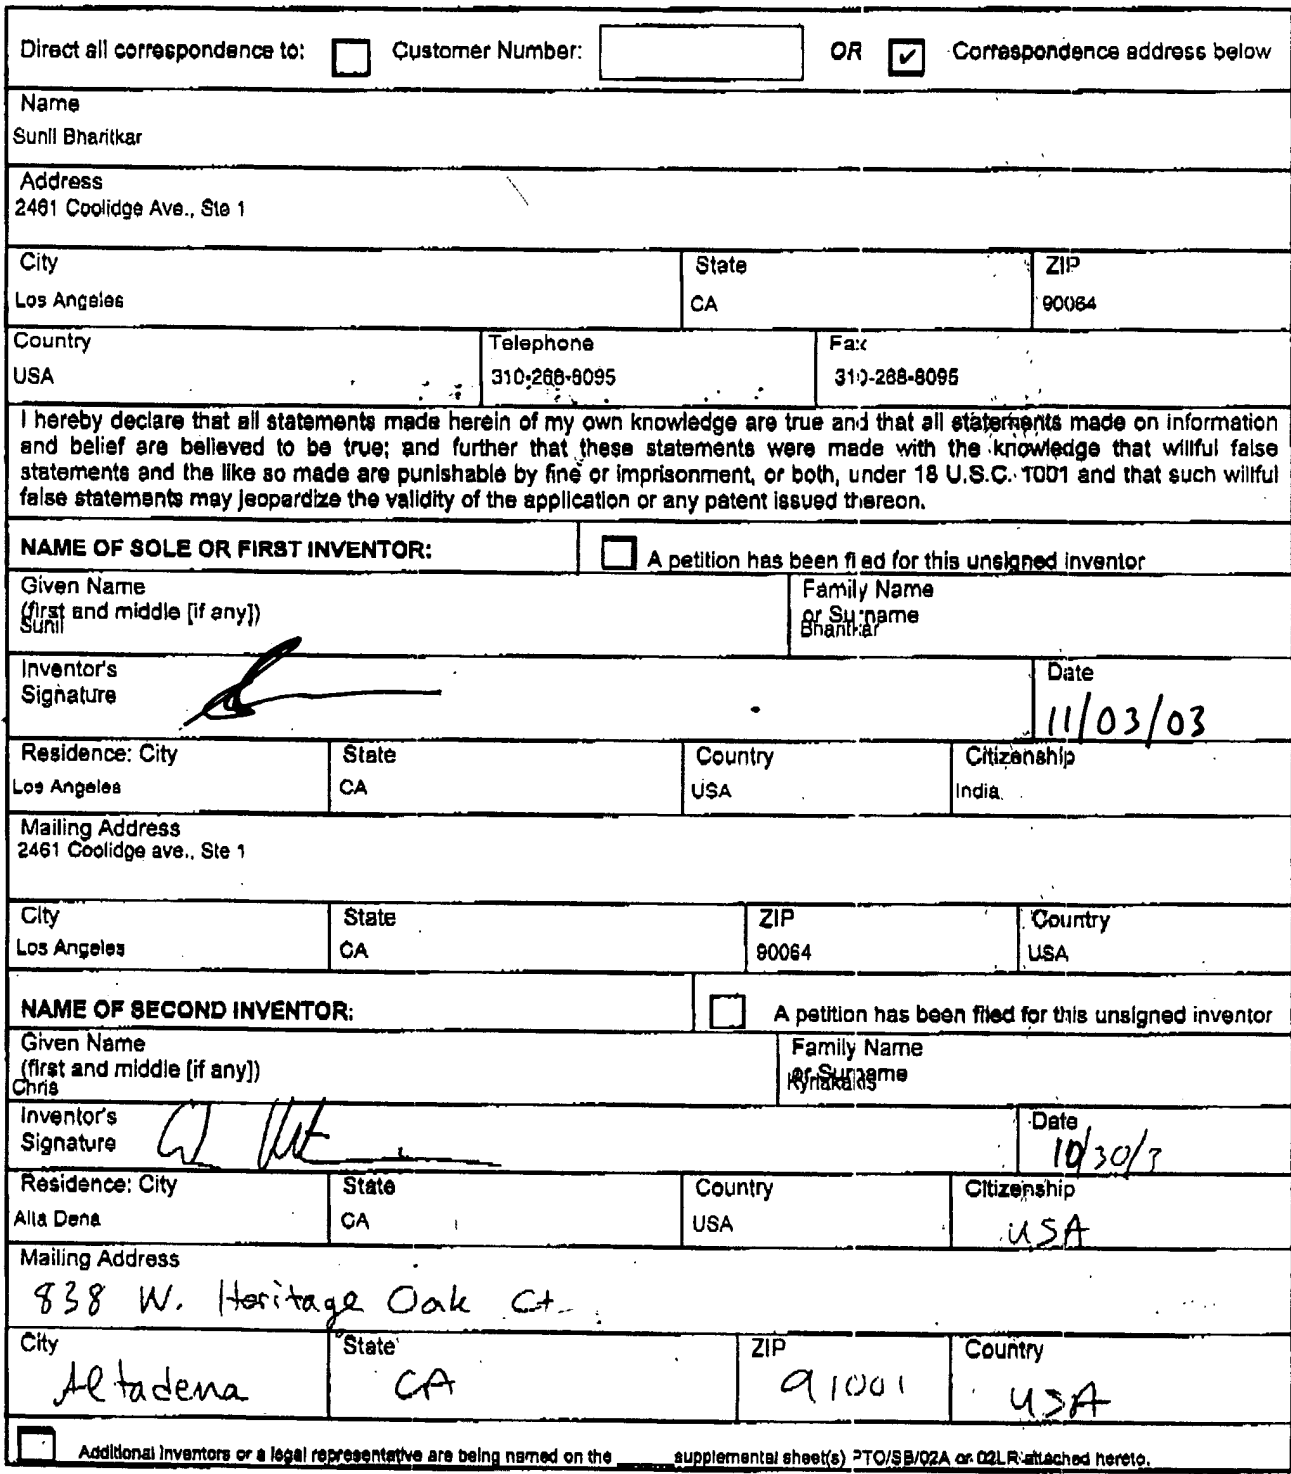 Direct all correspondence to: Customer Number: OR ✓ Correspondence address below
Name
Sunil Bharitkar
Address
2461 Coolidge Ave., Ste 1
City State ZIP
Los Angeles CA 90064
Country Telephone Fax
USA 310-268-8095 310-268-8095
I hereby declare that all statements made herein of my own knowledge are true and that all statements made on information
and belief are believed to be true; and further that these statements were made with the knowledge that willful false
statements and the like so made are punishable by fine or imprisonment, or both, under 18 U.S.C. 1001 and that such willful
false statements may jeopardize the validity of the application or any patent issued thereon.
NAME OF SOLE OR FIRST INVENTOR: A petition has been filed for this unsigned inventor
Given Name Family Name
(first and middle [if any]) or Surname
Sunil Bharitkar
Inventor's Date
Signature 11/03/03
Residence: City State Country Citizenship
Los Angeles CA USA India
Mailing Address
2461 Coolidge ave., Ste 1
City State ZIP Country
Los Angeles CA 90064 USA
NAME OF SECOND INVENTOR: A petition has been filed for this unsigned inventor
Given Name Family Name
(first and middle [if any]) or Surname
Chris Kyriakakis
Inventor's Date
Signature 10/30/3
Residence: City State Country Citizenship
Alta Dena CA USA USA
Mailing Address
838 W. Heritage Oak Ct.
City State ZIP Country
Altadena CA 91001 USA
Additional inventors or a legal representative are being named on the supplemental sheet(s) PTO/SB/02A or 02LR attached hereto.